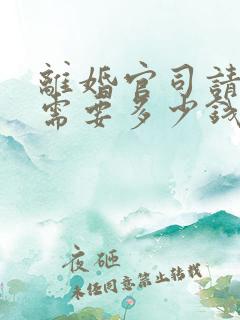 離婚官司請
需要多少錢
夜砸
未經同意禁止转载